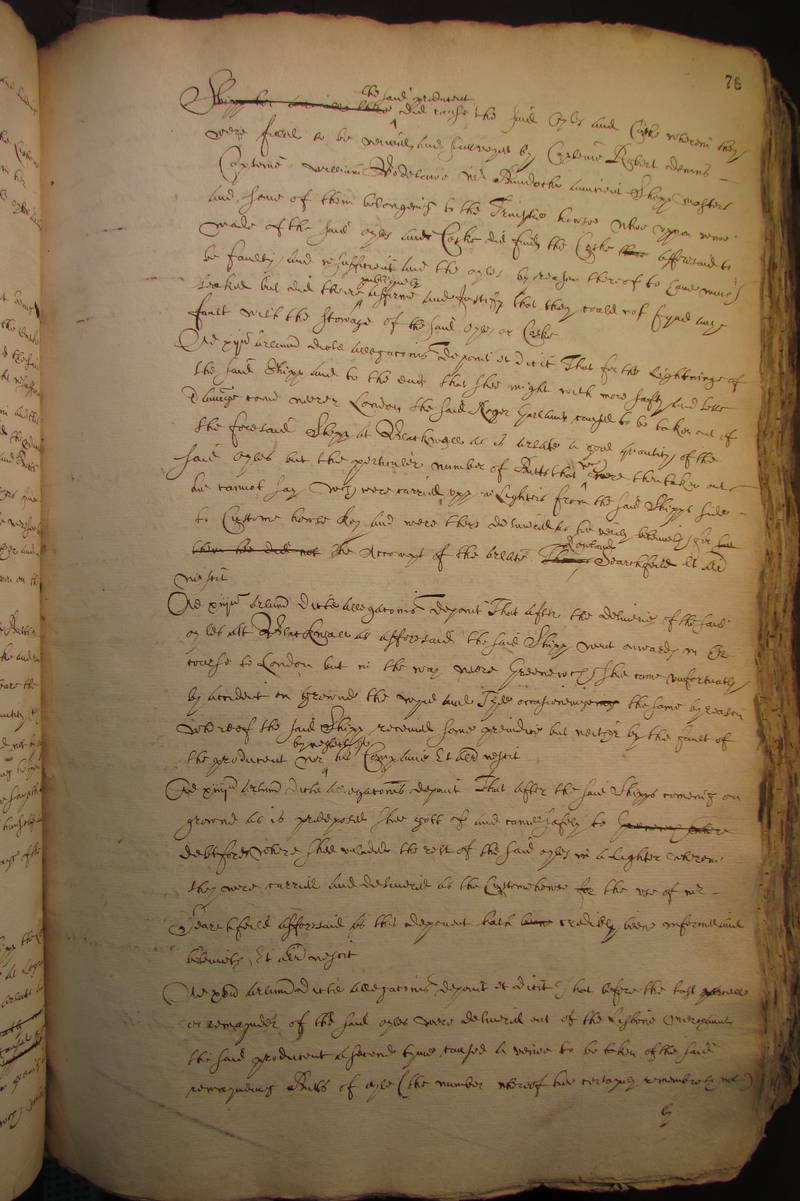 76
the said producent
did cause the said Oyles and Caske wherein they
were filled to be viewed and surveyed by Captaine Robert
Captaine William and Mr ancient Shipp masters
and some of them belonginge to the Trinitie howse who uppon view
made of the said oyles and Caske did finde the Caske aforesaid to
be faulty, and insufficient and the oyles by reason thereof to have much
leaked but did there publiquely affirme and Justify that they could not fynd any
fault with the stowage of the said oyles or Caske
Ad arlum dicte allegationis deponit et dicit That for the lightninge of
the said Shipp and to the end that shee might with more safty and lesse
damage come neerer London the said Roger caused to be taken out of
the foresaid Shipp at Blackwall as is arlate a good quantity of the
said oyles but the perticuler number of Butts that were then taken out
hee cannot say which were carried upp in Lighters from the said Shipps side
to Custome howse key and were there delivered as hee verily beleiveth for
them he did not the Accompt of the arlate Rowland Searchfeild Et aliter
nescit
Ad xiijum arlum dicte allegationis deponit That after the deliverie of the said
oyles att Blackwall as afforesaid the said Shipp went onwards in her
course to London but in the way neere Greenewich shee came unfortunatly
by accident on ground the wynd and Tyde occasioninge the same by reason
whereof the said Shipp received some preiudice but neither by the fault of
the producent nor by neglect of his Companie Et aliter nescit
Ad xiiijum arlum dicte allegationis deponit That after the said Shipps cominge on
ground as is predeposed shee gott of and came safely to
debtford where shee unladed the rest of the said oyles in a lighter wherein
they were carried and delivered at the Customehowse for the use of mr
Searchfeild afforesaid as this deponent hath credibly beene informed and
beleiveth, Et aliter nescit
Ad xvum arlum dicte allegationis deponit et dicit That before the last
or remaynder of the said oyles were delivered out of the Lisbone Merchant
the said producent a second tyme caused a view to be taken of the said
remayninge Butts of oyle (the number whereof hee certaynly remembreth not)
by